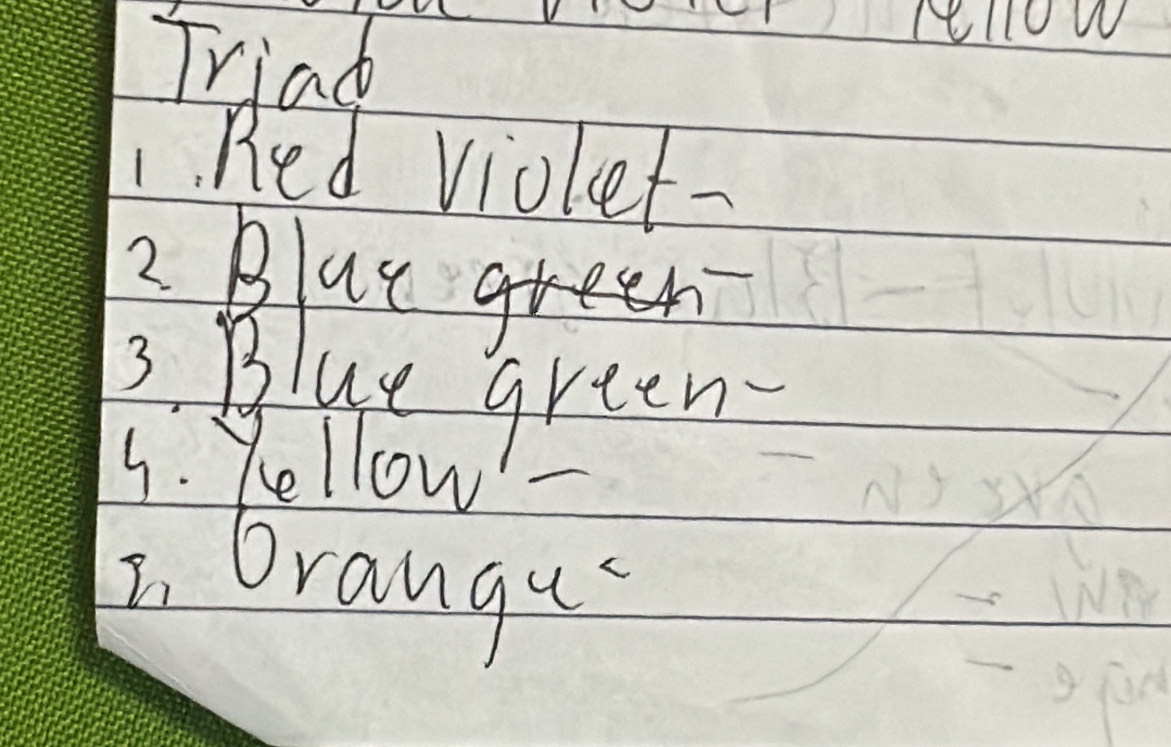 Violet Yellow
Triad
1. Red Violet-
2. Blue green-
3. Blue green-
4. Yellow -
5. Orange -